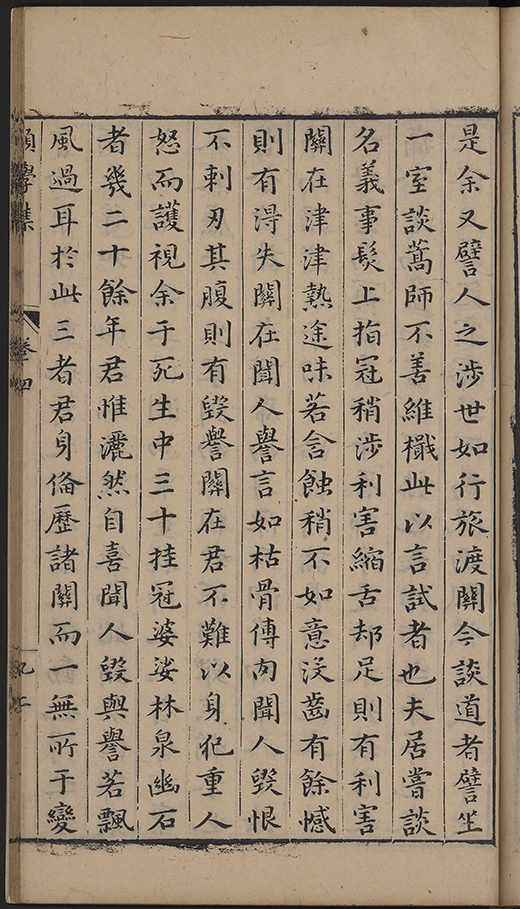 是余又譬人之涉世如行旅渡關今談道者譬坐
一室談蒿師不善維檝此以言試者也夫居嘗談
名義事髮上指冠稍涉利害縮舌却足則有利害
關在津津熱途味若含蝕稍不如意沒齒有餘憾
則有淂失關在聞人譽言如枯骨傅肉聞人毀恨
不剚刃其腹則有毀譽關在君不難以身犯重人
怒而護視余于死生中三十挂冠婆娑林泉幽石
者幾二十餘年君惟灑然自喜聞人毀與譽若飄
風過耳於此三者君身俻歷諸關而一無所于變
學集
卷四
九二